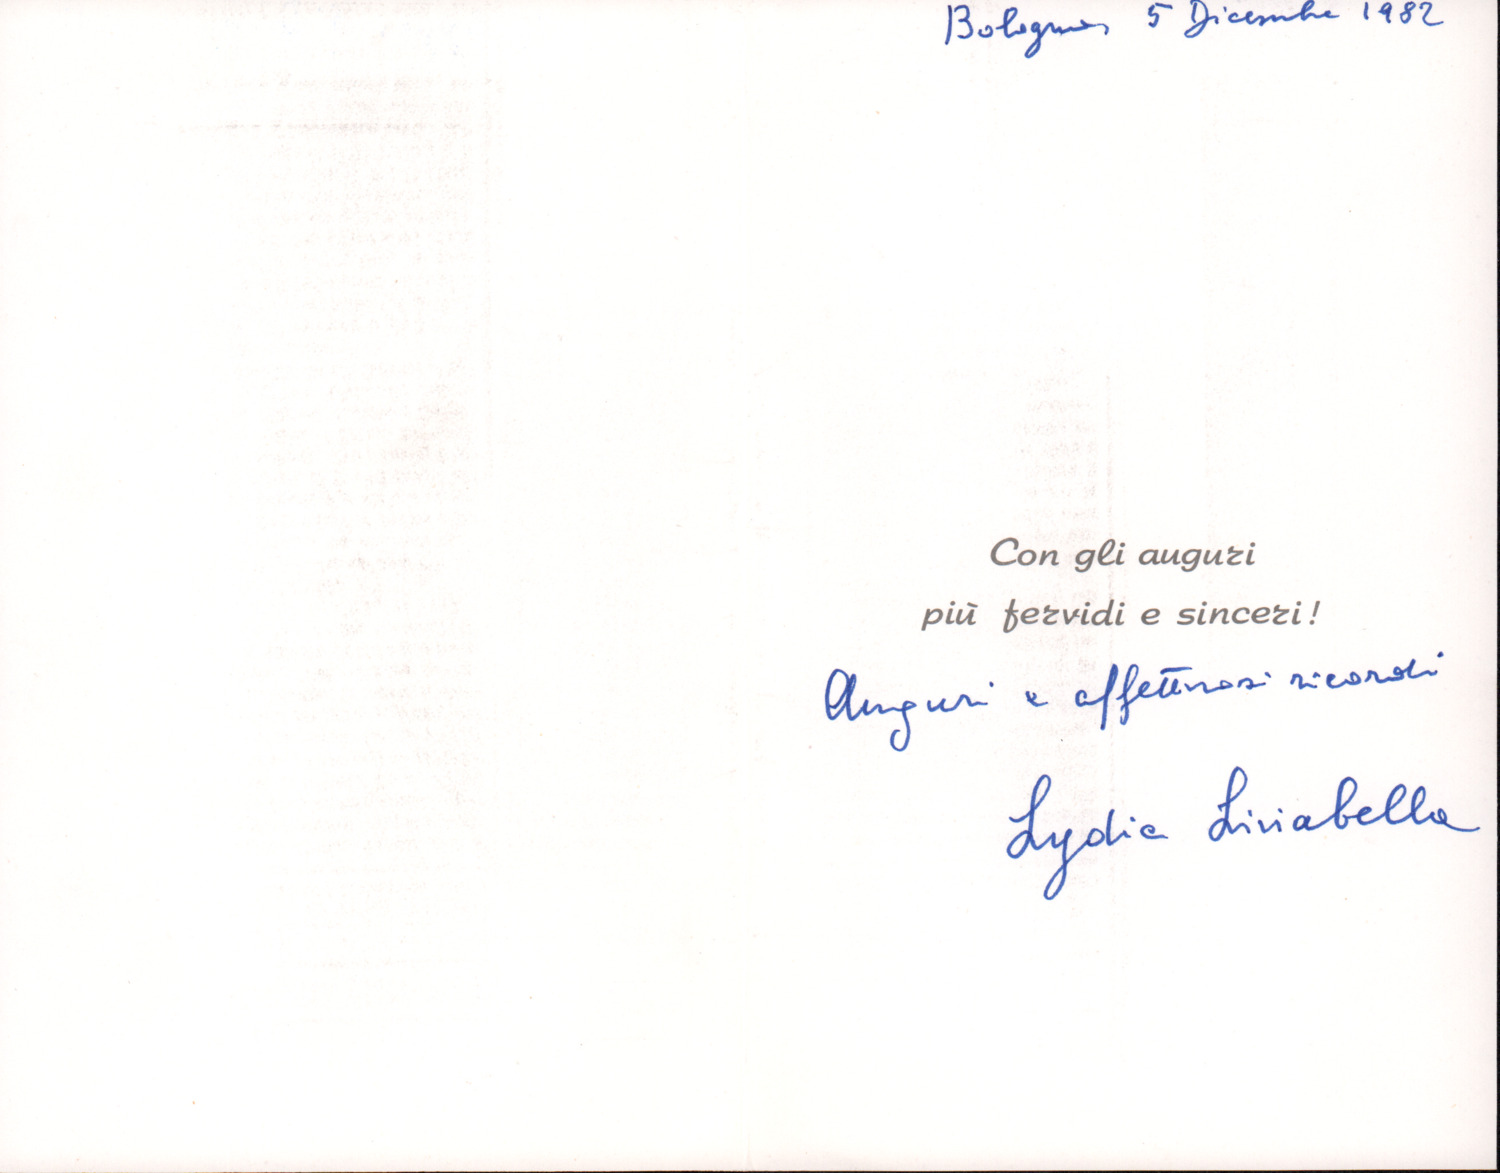 Bologna 5 Dicembre 1982
Con gli auguri
più fervidi e sinceri!
Auguri e affettuosi ricordi
Lydia Liviabella